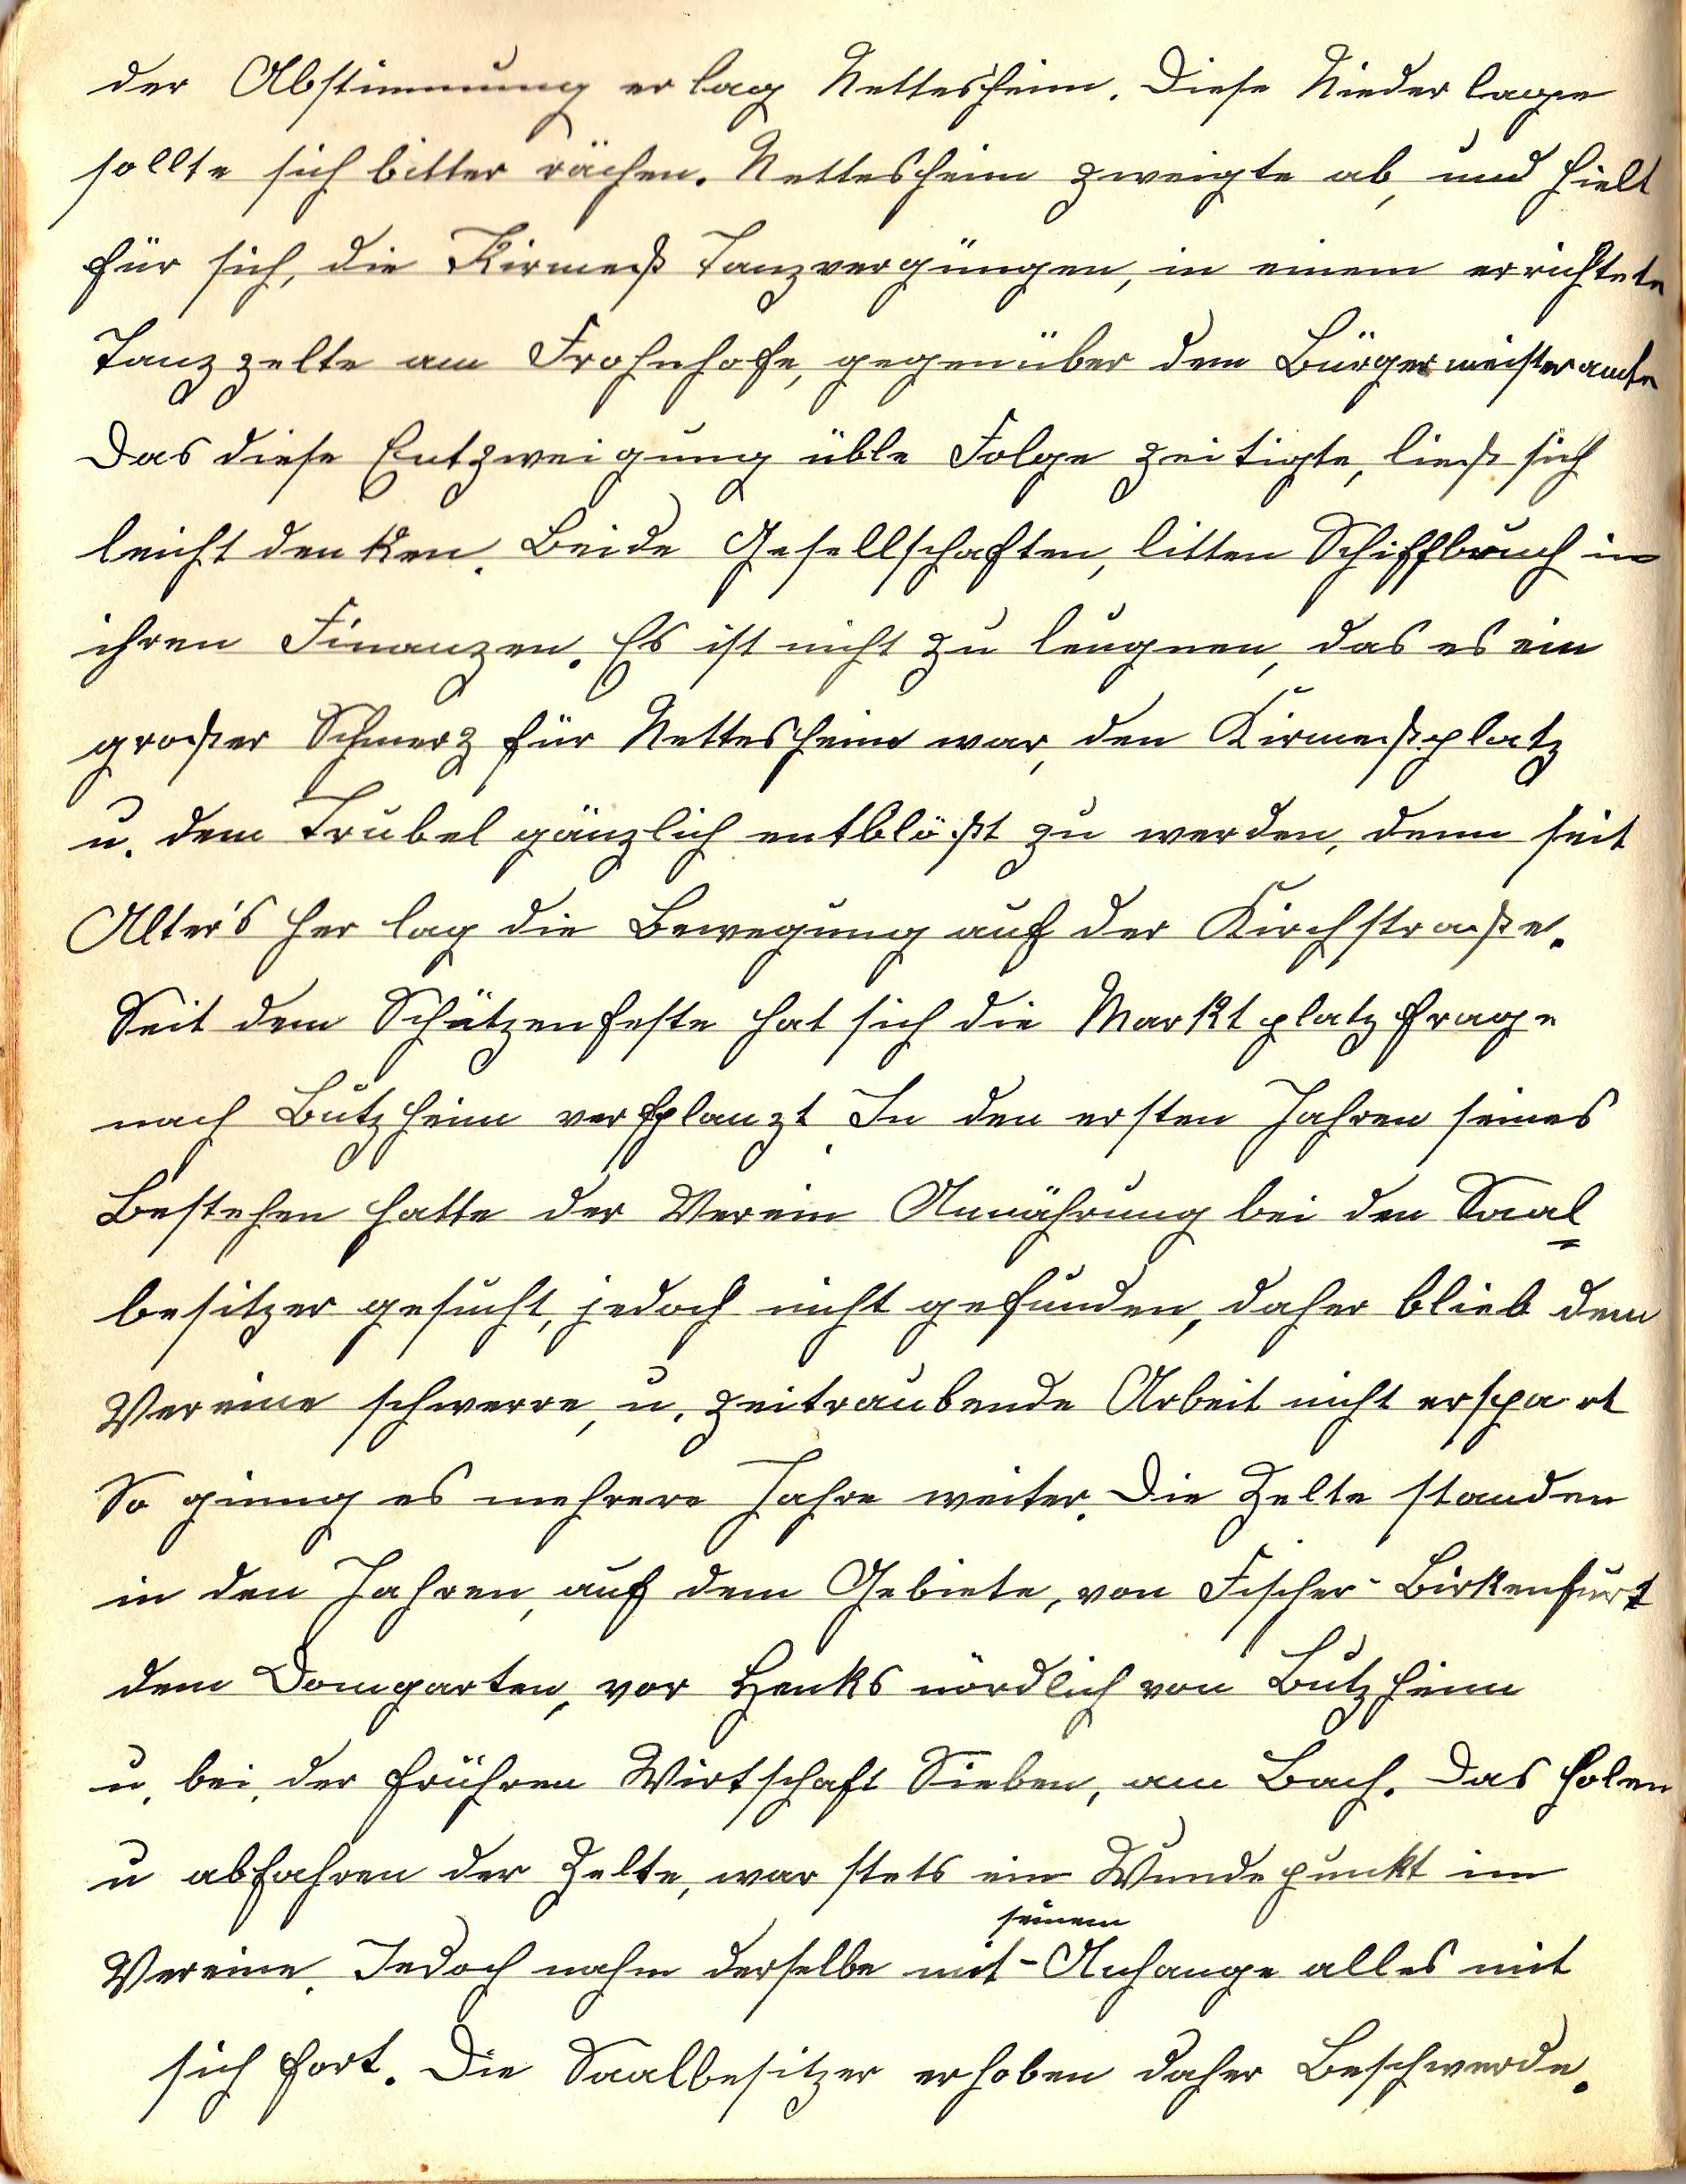 der Abstimmung erlag Nettesheim. Diese Niederlage
sollte sich bitter rächen. Nettesheim zweigte ab, und hielt
für sich, die Kirmeß Tanzvergüngen, in einem errichtete
Tanzzelte am Frohnhofe, gegenüber dem Bürgermeisteramte
Das diese Entzweigung üble Folge zeitigte, ließ sich
leicht denken. Beide Gesellschaften, litten Schiffbruch in
ihren Finanzen. Es ist nicht zu leugnen, das es ein
großer Schmerz für Nettesheim war, den Kirmeßplatz
u. dem Trubel gänzlich entblößt zu werden, denn seit
Alter's her lag die Bewegung auf der Kirchstraße.
Seit dem Schützenfeste hat sich die Marktplatzfrage
nach Butzheim verfplanzt. In den ersten Jahren seines
Bestehen hatte der Verein Annährung bei den Saal=
besitzer gesucht, jedoch nicht gefunden, daher blieb dem
Vereine schwerre, u. zeitraubende Arbeit nicht erspart
So ginng es mehrere Jahre weiter. Die Zelte standen
in den Jahren, auf dem Gebiete, von Fischer-Birkenfurt
dem Domgarten, vor Henks nördlich von Butzheim
u. bei, der frühren Wirtschaft Sieben, am Bach. Das holen
u abfahren der Zelte, war stets ein Wundepunkt im
Vereine. Jedoch nahm derselbe mit - seinem Anhange alles mit
sich fort. Die Saalbesitzer erhoben daher Beschwerde.